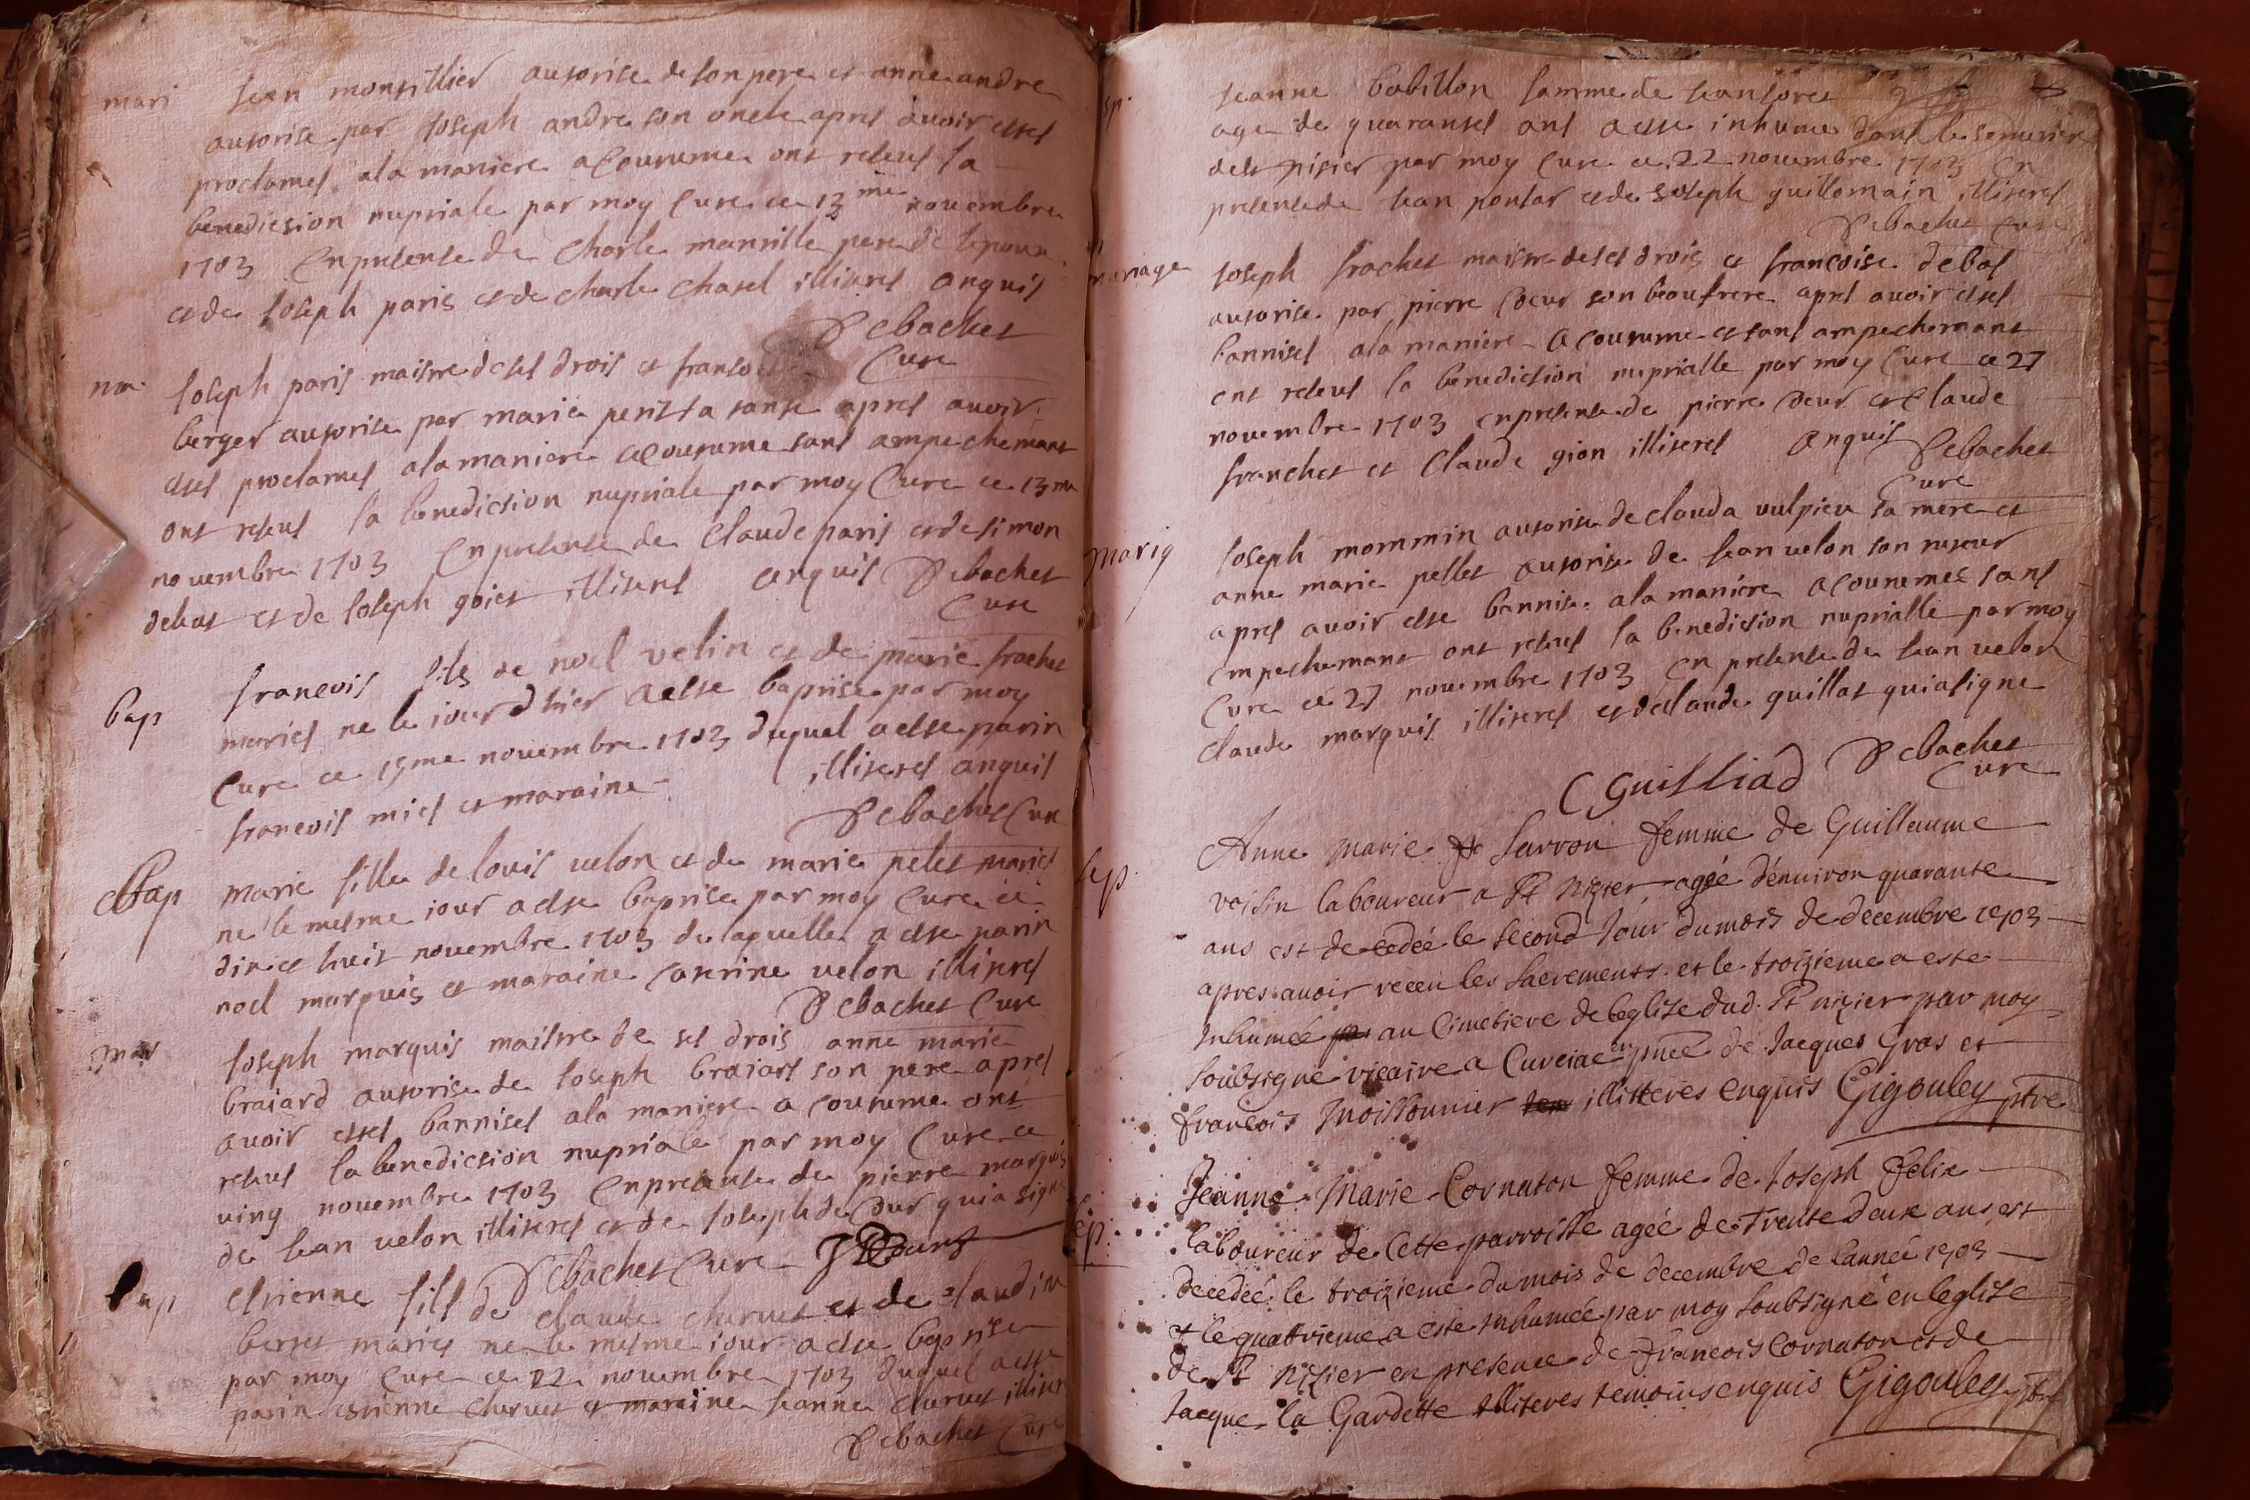 mari Jean monsillier autorise de son pere et anne andre
autorise par Joseph andre son oncle apres avoir estes
proclames a la maniere acoutume ont reseus la
benediction nuptiale par moy Cure ce 13 me novembre
1703 en presense de Charle manville pere de
et de Joseph paris et de charle chasel illiteres anquis
Debachet
Cure
mar Joseph paris maistre de ses drois et franso
berger autorise par marie sa tante apres avoir
estes proclames a la maniere acoutume sans ampechemant
ont reseus la benediction nuptiale par moy Cure ce 13 me
novembre 1703 en presense de Claude paris et de simon
debas et de Joseph goiet illiteres anquis Debachet
Cure
bap francois fils de noel velin et de marie frachet
maries ne le jour d hier a este baptise par moy
Cure ce 15me novembre 1703 duquel a este parin
francois mies et maraine illiteres anquis
Debachet Cure
Bap marie fille de louis velon et de marie pelet maries
ne le mesme jour a este baptise par moy Cure ce
dix et huit novembre 1703 de laquelle a este parin
noel marquis et maraine caterine velon illiteres
Debachet Cure
mar Joseph marquis maistre de ses drois anne marie
braiard autorise de Joseph braiart son pere apres
avoir estes bannises a la maniere a coutume ont
reseus la benediction nuptiale par moy Cure ce
ving novembre 1703 en presense de pierre marquis
de Jean velon illiteres et de Joseph de Cour qui a signe
Debachet Cure
bap etienne fils de claude charvet et de claudine
berset maries ne le mesme jour a este baptise
par moy Cure ce 22 novembre 1703 duquel a este
parin etienne charvet et maraine Jeanne charvet
Debachet Cure
Jeanne babillon famme de Jean
age de quarantes ans a este inhume dans le semetiere
de st nisier par moy Cure ce 22 novembre 1703 en
presense de Jean ponsar et de Joseph guillomain illiteres
Debachet Cure
mariage Joseph frachet maistre de ses drois et francoise debas
autorise par pierre Coeur son beaufrere apres avoir estes
bannises a la maniere acoutume et sans ampechemant
ont reseus la benediction nuptialle par moy Cure ce 27
novembre 1703 en presense de pierre Coeur et Claude
franchet et Claude gion illiteres anquis Debachet
Cure
mariage Joseph mommin autorise de clauda vulpieu sa mere et
anne marie pellet autorise de Jean velon son tuteur
apres avoir este bannise a la maniere acoutumee sans
empechemant ont reseus la benediction nuptialle par moy
Cure ce 27 novembre 1703 en presense de Jean velon
claude marquis illiteres et de claude guillat qui a signe
C Guilliad Debachet
Cure
sep. Anne Marie Sarron femme de Guillaume
voisin laboureur a St Nizier agée d'environ quarante
ans est decedée le second Jour du mois de decembre 1703
apres avoir receu les sacrements et le troizieme a este
Inhumée au Cimetiere de leglise dud. St nizier par moy
soubsigné vicaire a Curciac en pnce de Jacques Gras et
francois Moissonnier illitteres enquis Gigouley ptre
sep. Jeanne Marie Cornaton femme de Joseph Felix
laboureur de Cette parroisse agée de Trente deux ans est
decedée le troizieme du mois de decembre de l'année 1703
& le quattrieme a este Inhumée par moy soubsigné en leglise
de St Nizier en presence de Francois Cornaton et de
Jacque la Gardette Illiteres temoins enquis Gigouley ptre